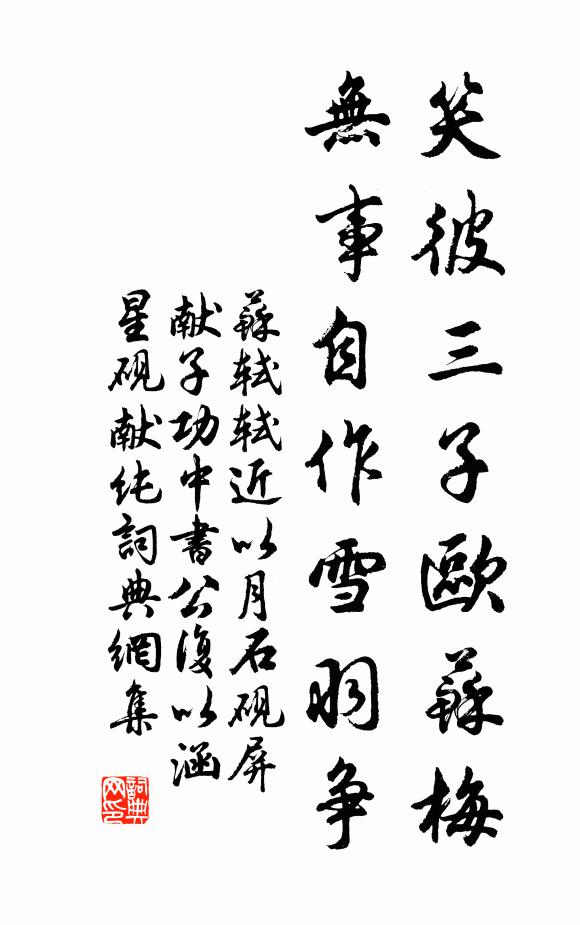 笑彼三子歐蘇梅
無事自作雪羽爭
蘇軾軾近以月石硯屏
献子功中書公復以涵
星硯献纯詞典網集
詞典网印